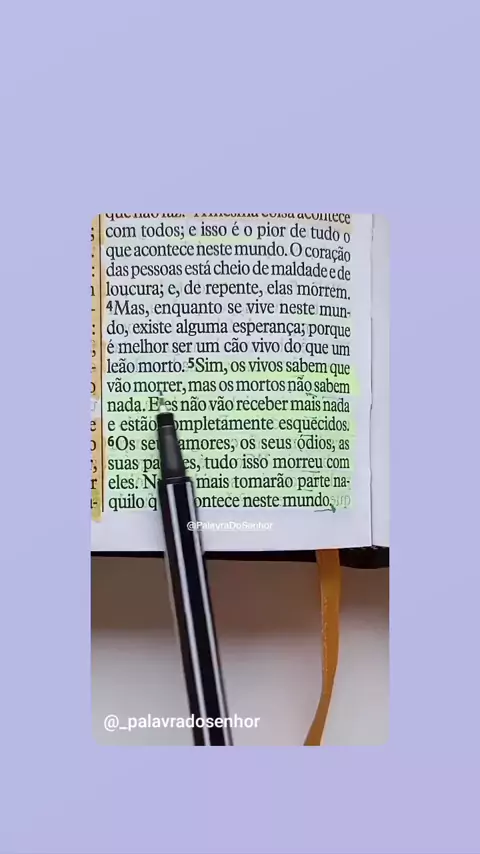 que não faz. A mesma coisa acontece
com todos; e isso é o pior de tudo o
que acontece neste mundo. O coração
das pessoas está cheio de maldade e de
loucura; e, de repente, elas morrem.
4Mas, enquanto se vive neste mun-
do, existe alguma esperança; porque
é melhor ser um cão vivo do que um
leão morto. 5Sim, os vivos sabem que
vão morrer, mas os mortos não sabem
nada. Eles não vão receber mais nada
e estão completamente esquecidos.
6Os seus amores, os seus ódios, as
suas paixões, tudo isso morreu com
eles. Nunca mais tomarão parte na-
quilo que acontece neste mundo.
@PalavraDoSenhor
@_palavradosenhor